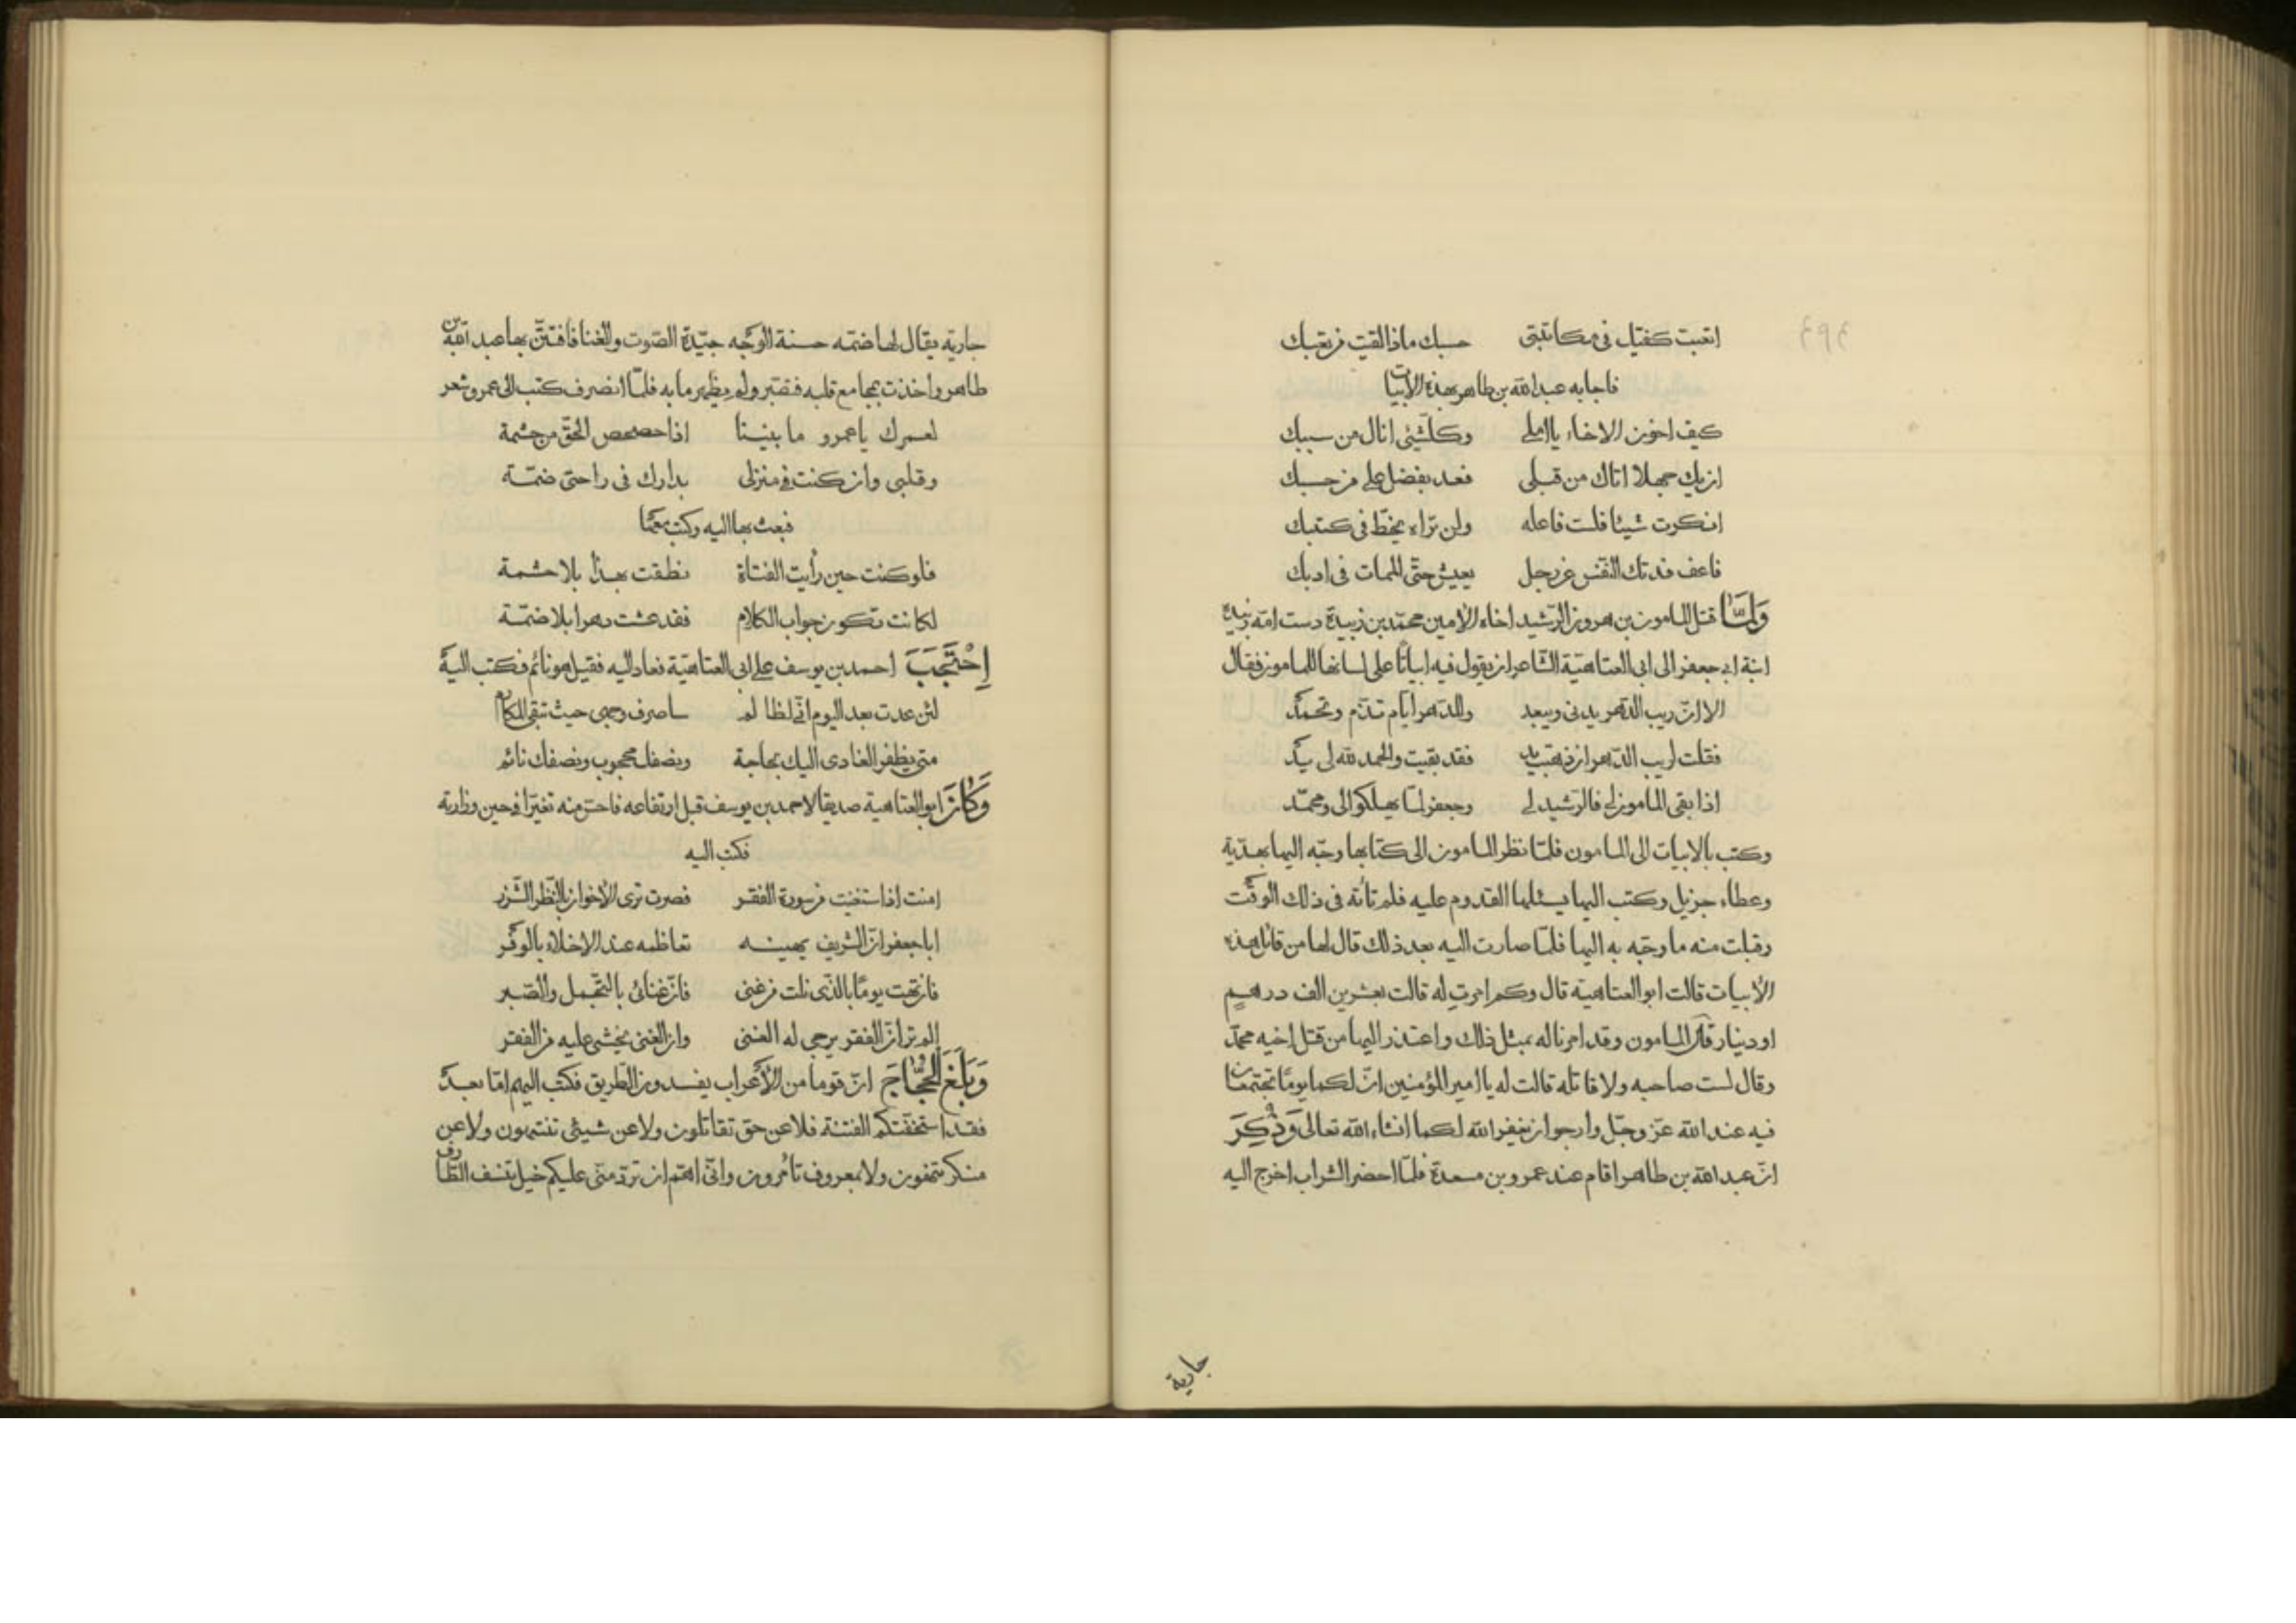 اتعبت كفيك فى مكاتبتى حسبك ماذا لقيت من تعبك
فاجابه عبدالله بن طاهر بهذه الابيات
كيف اخون الاخاء يا املى وكل شيئ انال من سببك
ان يك جهلا اتاك من قبلى فعد بفضل على من حسبك
انكرت شيئا فلست فاعله ولن تراه يخط فى كتبك
فاعف فدتك النفس عن رجل يعيش حتى الممات فى ادبك
وَلَمَّا قتل المامون بن هرون الرّشيد اخاه الامين محمّد بن زبيدة دست امّه زبيدة
ابنة ابى جعفر الى ابى العتاهيّة الشّاعر ان يقول فيه ابياتًا على لسانها للمامون فقال
الا انّ ريب الدّهر يدنى ويبعد وللدّهر ايّام تذمّ وتحمد
فقلت لريب الدّهر ان ذهبت يد فقد بقيت والحمد لله لى يد
اذا بقى المامون لى فالرّشيد لى وجعفر لمّا يهلكوا لى ومحمّد
وكتب بالابيات الى المامون فلمّا نظر المامون الى كتابها وجّه اليها بهديّة
وعطاء جزيل وكتب اليها يسئلها القدوم عليه فلم تأته فى ذلك الوقت
وقبلت منه ما وجّه به اليها فلمّا صارت اليه بعد ذلك قال لها من قائل هذه
الأبيات قالت ابو العتاهية قال وكم امرت له قالت بعشرين الف درهم
او دينار قال المامون وقد امرنا له بمثل ذلك واعتذر اليها من قتل اخيه محمّد
وقال لست صاحبه ولا قاتله قالت له يا امير المؤمنين انّ لكما يومًا تجتمعان
فيه عند الله عزّ وجلّ وارجوا ان يغفر الله لكما انشاء الله تعالى وَذُكِرَ
انّ عبد الله بن طاهر اقام عند عمرو بن مسعدة فلمّا احضر الشراب اخرج اليه
جارية
جارية يقال لها ضمّه حسنة الوجه جيّدة الصّوت والغنا فافتتنّ بها عبد الله بن
طاهر واخذت بمجامع قلبه فصبر ولم يظهر ما به فلمّا انصرف كتب الى عمرو شعر
لعمرك يا عمرو ما بيننا اذا حصحص الحقّ من حشمة
وقلبى وان كنت فى منزلى بدارك فى راحتى ضمّة
فبعث بها اليه وكتب معها
فلو كنت حين رأيت الفتاة نطقت بهذا بلا حشمة
لكانت تكون جواب الكلام فقد عشت دهرا بلا ضمّة
اِحْتَجَبَ احمد بن يوسف على ابى العتاهيّة فعاد اليه فقيل هو نائم فكتب اليه
لئن عدت بعد اليوم انّى لظالم ساصرف وجهى حيث تبقى المكارم
متى يظفر الغادى اليك بحاجة ونصفك محجوب ونصفك نائم
وَكَانَ ابو العتاهية صديقا لاحمد بن يوسف قبل ارتفاعه فاحسّ منه تغيّرا فى حين وزارته
فكتب اليه
امنت اذا استغنيت من سورة الفقر فصرت ترى الأخوان بالنّظر الشّزر
ابا جعفر انّ الشريف يهينه تعاظمه عند الاخلاء بالوفر
فان تهت يومًا بالّذى نلت من غنى فانّ غنائى بالتّجمل والصّبر
الم تر انّ الفقر يرجى له الغنى وان الغنى يخشى عليه من الفقر
وَبَلَغَ الحَجَّاجَ انّ قوما من الأعراب يفسدون الطّريق فكتب اليهم امّا بعد
فقد استخفّتكم الفتنة فلا عن حق تقاتلون ولا عن شيئى تنتهون ولا عن
منكر ولا بمعروف تأمرون وانّى اهمّ ان ترد منّى عليكم خيل تنسف الطّارف